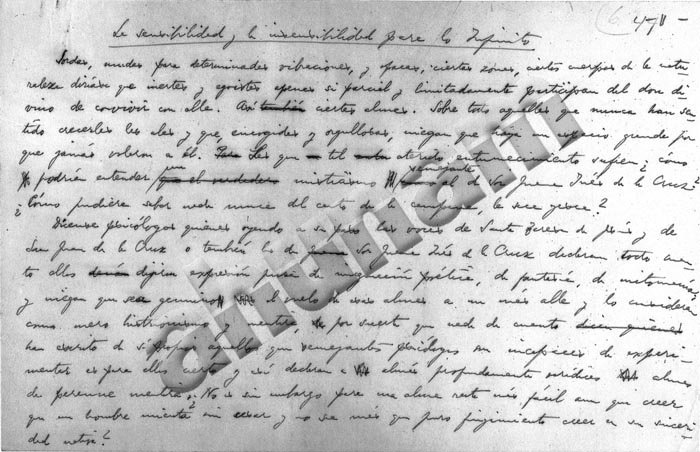 (6 471 -
La sensibilidad y la insensibilidad para lo Infinito
Sordas, mudas para determinadas vibraciones, y opacas, ciertas zonas, ciertos cuerpos de la natu
raleza diríase que inertes y egoistas apenas si parcial y limitadamente participan del don di
vino de convivir con ella. Así también ciertas almas. Sobre todo aquellas que nunca han sen
tido crecerles las alas y que, encogidas y orgullosas, niegan que haya un espacio grande por
que jamás volaron a él. Las que tal aterido entumecimiento sufren ¿cómo
podrían entender que el verdadero misticismo semejante al de Sor Juana Inés de la Cruz?
¿Cómo pudiera saber nada nunca del canto de la campana, la seca yesca?
Dícense psicólogos quienes oyendo a su paso las voces de Santa Teresa de Jesús y de
San Juan de la Cruz o también la de Sor Juana Inés de la Cruz declaran todo cuan
to ellos dijeron expresión pura de imaginación poética, de fantasía, de mitomanía
y niegan que sea genuino el vuelo de esas almas a un más allá y lo consideran
como mero histrionismo y mentira, por suerte que nada de cuanto
han escrito de sí propios aquellos que semejantes psicólogos son incapaces de experi
mentar es para ellos cierto y así declaran a almas profundamente verídicas almas
de perenne mentira. No es sin embargo para una alma recta más fácil aun que creer
que un hombre mienta sin cesar y no sea más que puro fingimiento creer en su sincer
dad nativa?
airunam